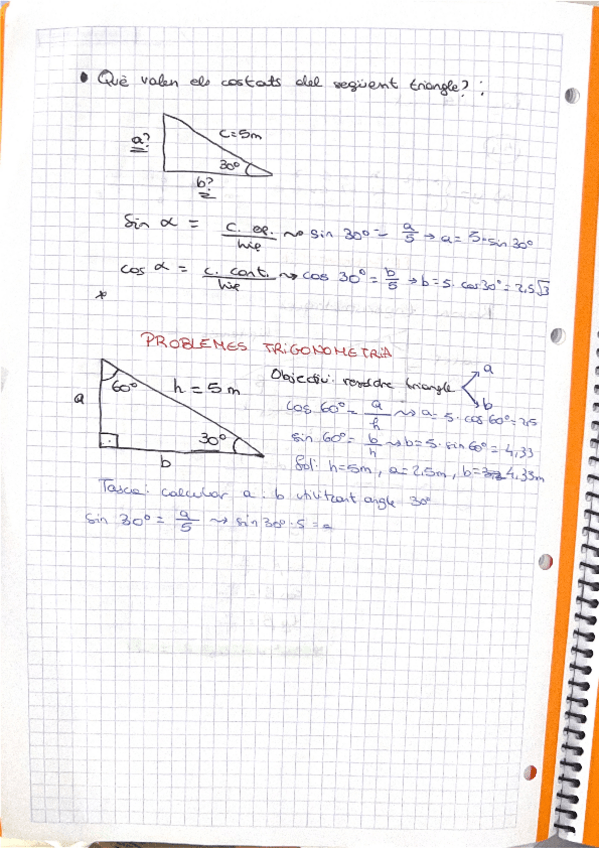 • Què valen els costats del següent triangle? :
a?
c=5m
30°
b?
Sin α = c. op. / hip ⇝ sin 30° = a/5 → a = 5·sin 30°
cos α = c. cont. / hip ⇝ cos 30° = b/5 → b = 5· cos 30° = 2,5√3
*
PROBLEMES TRIGONOMETRIA
60°
h = 5m
a
30°
b
Objectiu: resoldre triangle
a
b
cos 60° = a/h ⇝ a = 5· cos 60° = 2,5
sin 60° = b/h ⇝ b = 5· sin 60° = 4,33
Sol: h=5m, a=2,5m, b= 4,33m
Tasca: calcular a i b utilitzant angle 30°
sin 30° = a/5 ⇝ sin 30°·5 = a